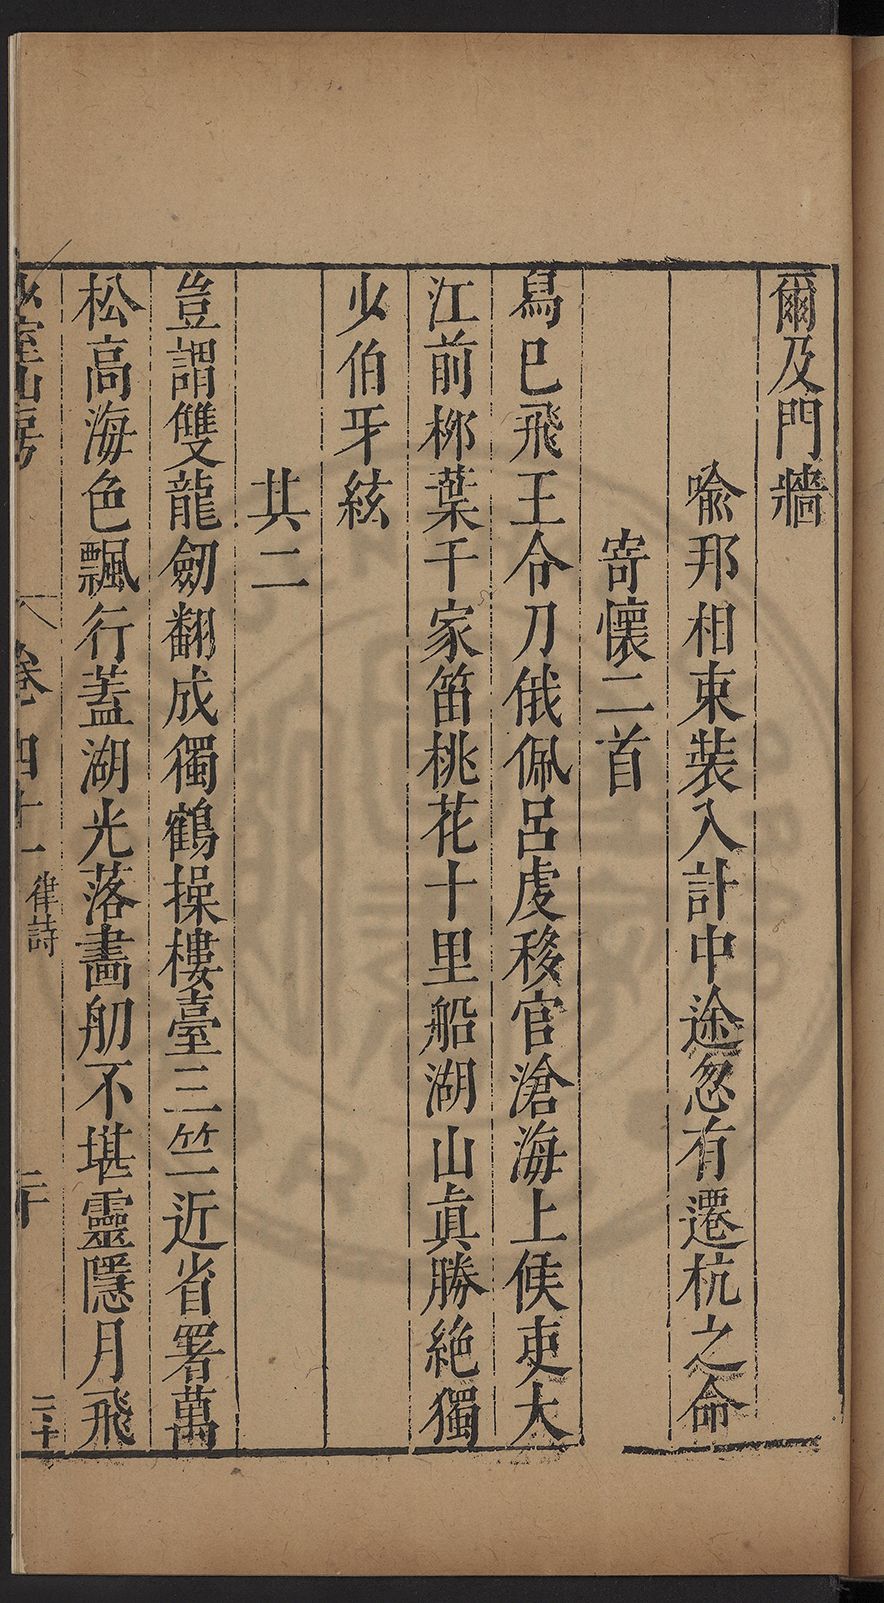 爾及門牆
喻邦相束裝入計中途忽有遷杭之命
寄懷二首
舃巳飛王令刀俄佩呂虔移官滄海上候吏大
江前桺葉千家笛桃花十里船湖山眞勝絶獨
少伯牙絃
其二
豈謂雙龍劒翻成獨鶴操樓臺三竺近省署萬
松高海色飄行蓋湖光落畵舠不堪靈隱月飛
少室山房 卷四十一 律詩 二十 二十